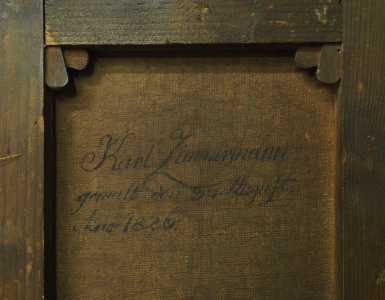 Karl Zimmermann
gemalt den August
Anno 1836